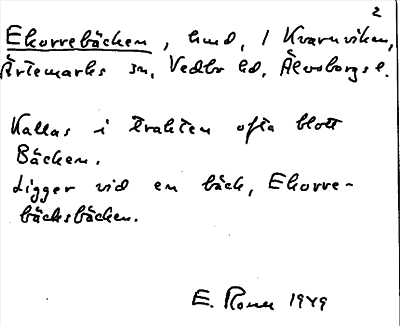 2
Ekorrebäcken, hmd, i Kvarnviken,
Ärtemarks sn, Vedbo hd, Älvsborgs l.
Kallas i trakten ofta blott
Bäcken.
Ligger vid en bäck, Ekorre-
bäcksbäcken.
E. 1949